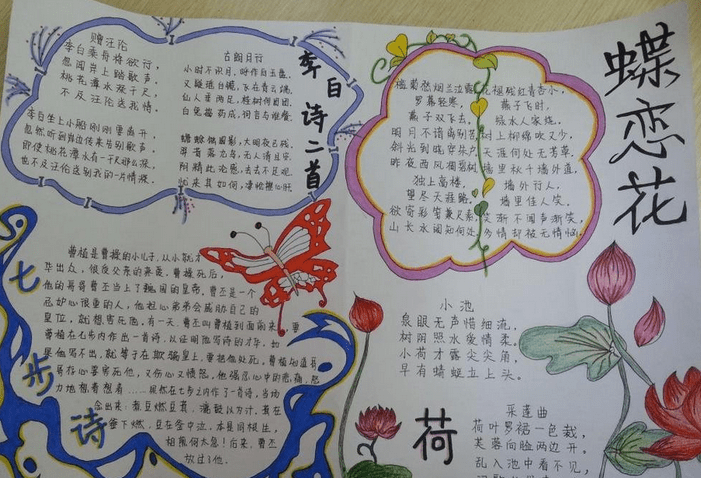 赠汪伦
李白乘舟将欲行,
忽闻岸上踏歌声。
桃花潭水深千尺,
不及汪伦送我情。
李白坐上小船刚刚要离开,
忽然听到岸边传来告别歌声。
即使桃花潭水有一千尺那么深,
也不及汪伦送别我的一片情深。
古朗月行
小时不识月,呼作白玉盘。
又疑瑶台镜,飞在青云端。
仙人垂两足,桂树何团团。
白兔捣药成,问言与谁餐。
蟾蜍蚀圆影,大明夜已残。
羿昔落九乌,天人清且安。
阴精此沦惑,去去不足观。
忧来其如何,凄怆摧心肝
李白诗二首
槛菊愁烟兰泣露
罗幕轻寒,
燕子双飞去。
明月不谙离别苦
斜光到晓穿朱户
昨夜西风凋碧树
独上高楼,
望尽天涯路。
欲寄彩笺兼尺素
山长水阔知何处
花褪残红青杏小,
燕子飞时,
绿水人家绕。
枝上柳绵吹又少,
天涯何处无芳草。
墙里秋千墙外道,
墙外行人,
墙里佳人笑。
笑渐不闻声渐笑,
多情却被无情恼
蝶恋花
七步诗
曹植是曹操的小儿子,从小就才
华出众,很受父亲的亲爱。曹操死后,
他的哥哥曹丕当上了魏国的皇帝。曹丕是一个
忌妒心很重的人,他担心弟弟会威胁自己的
皇位,就想害死他。有一天,曹丕叫曹植到面前来,要
曹植在七步内作出一首诗,以证明他写诗的才华。如
果他写不出,就等于在欺骗皇上,要把他处死。曹植知道哥
哥存心要害死他,又伤心又愤怒。他强忍心中的悲痛,努
力地想着想着……果然在七步之内作了一首诗,当场
念出来:煮豆燃豆萁,漉豉以为汁。萁在
釜下燃,豆在釜中泣。本是同根生,
相煎何太急!后来,曹丕
放过了他。
小池
泉眼无声惜细流,
树阴照水爱情柔。
小荷才露尖尖角,
早有蜻蜓立上头。
荷
采莲曲
荷叶罗裙一色裁,
芙蓉向脸两边开。
乱入池中看不见,